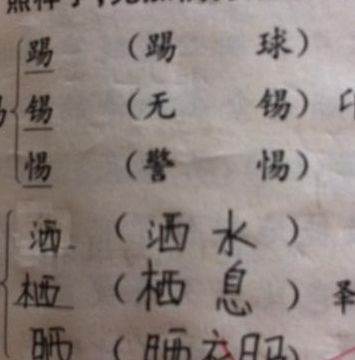 踢 （踢 球）
锡 （无 锡）
惕 （警 惕）
洒 （洒 水）
栖 （栖 息）
晒 （晒